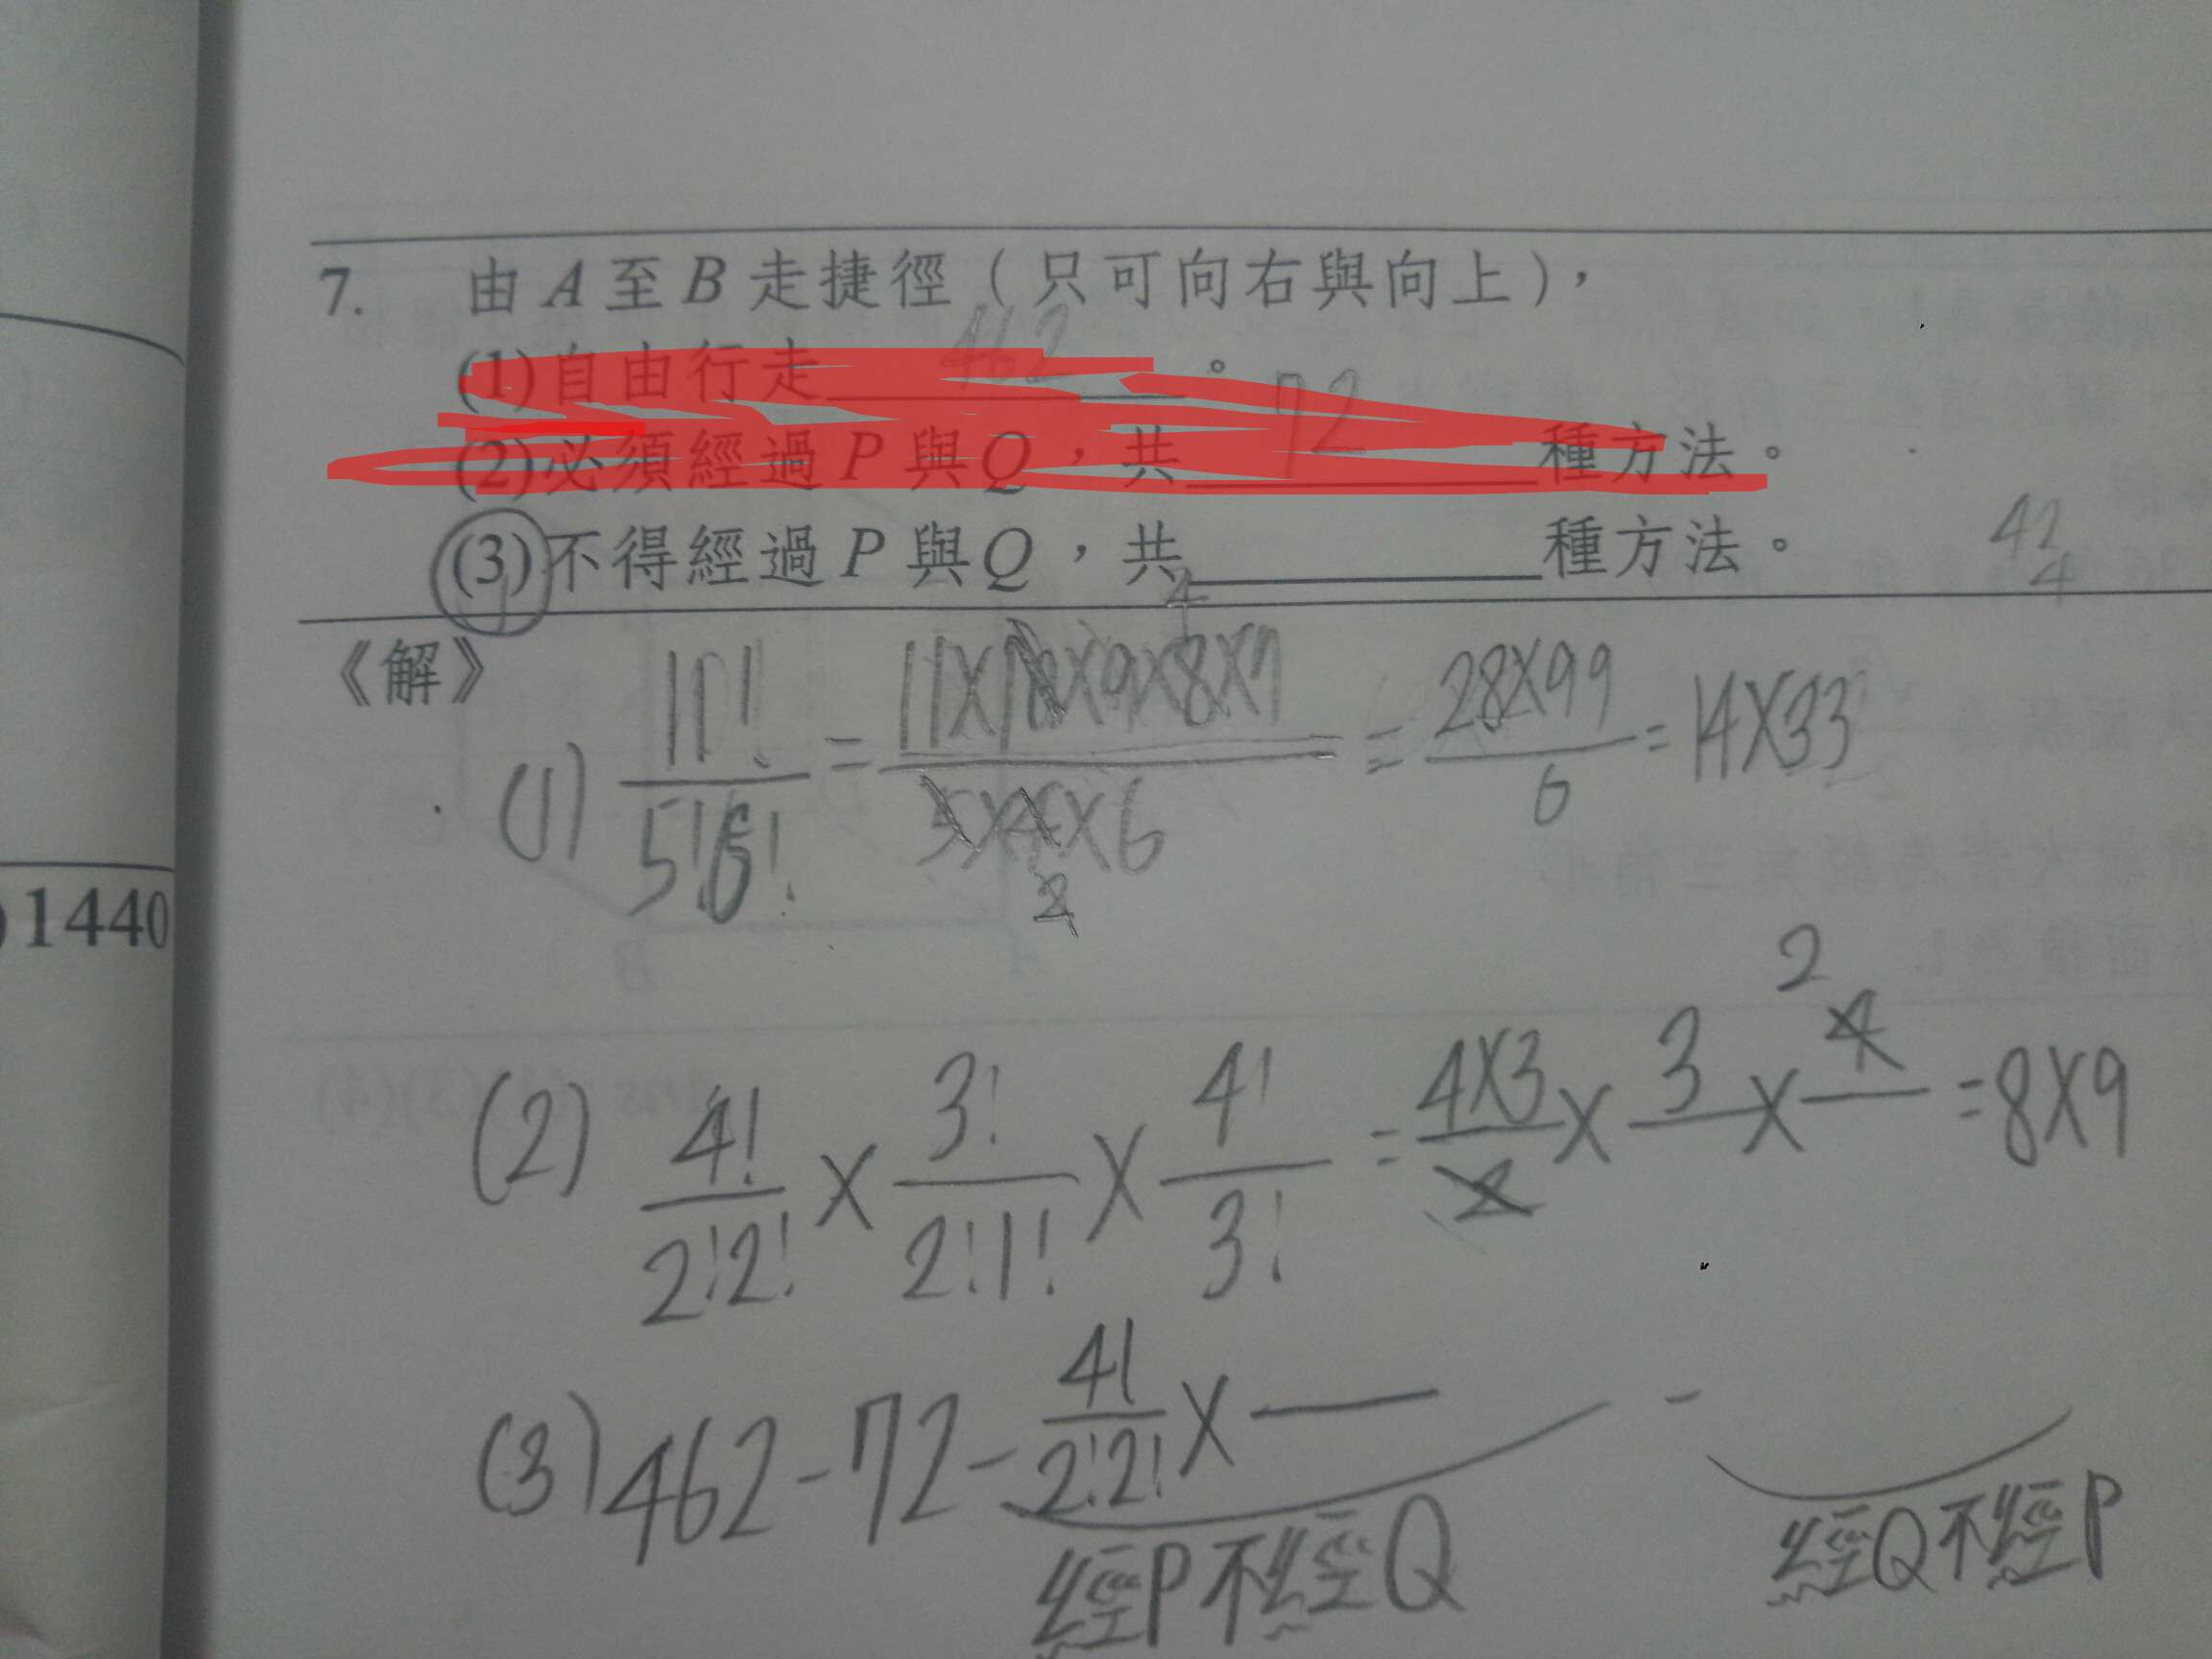 7. 由A至B走捷徑（只可向右與向上），
(1)自由行走 462 。
(2)必須經過P與Q，共 72 種方法。
(3)不得經過P與Q，共 種方法。
42
4
《解》
(1) 11!/5!6! = 11×10×9×8×7/5×4×6 = 28×99/6 = 14×33
4
2
)1440
(2) 4!/2!2! × 3!/2!1! × 4!/3! = 4×3/2 × 3 × 4 = 8×9
2
(3) 462-72- 4!/2!2! × — -
經P不經Q 經Q不經P